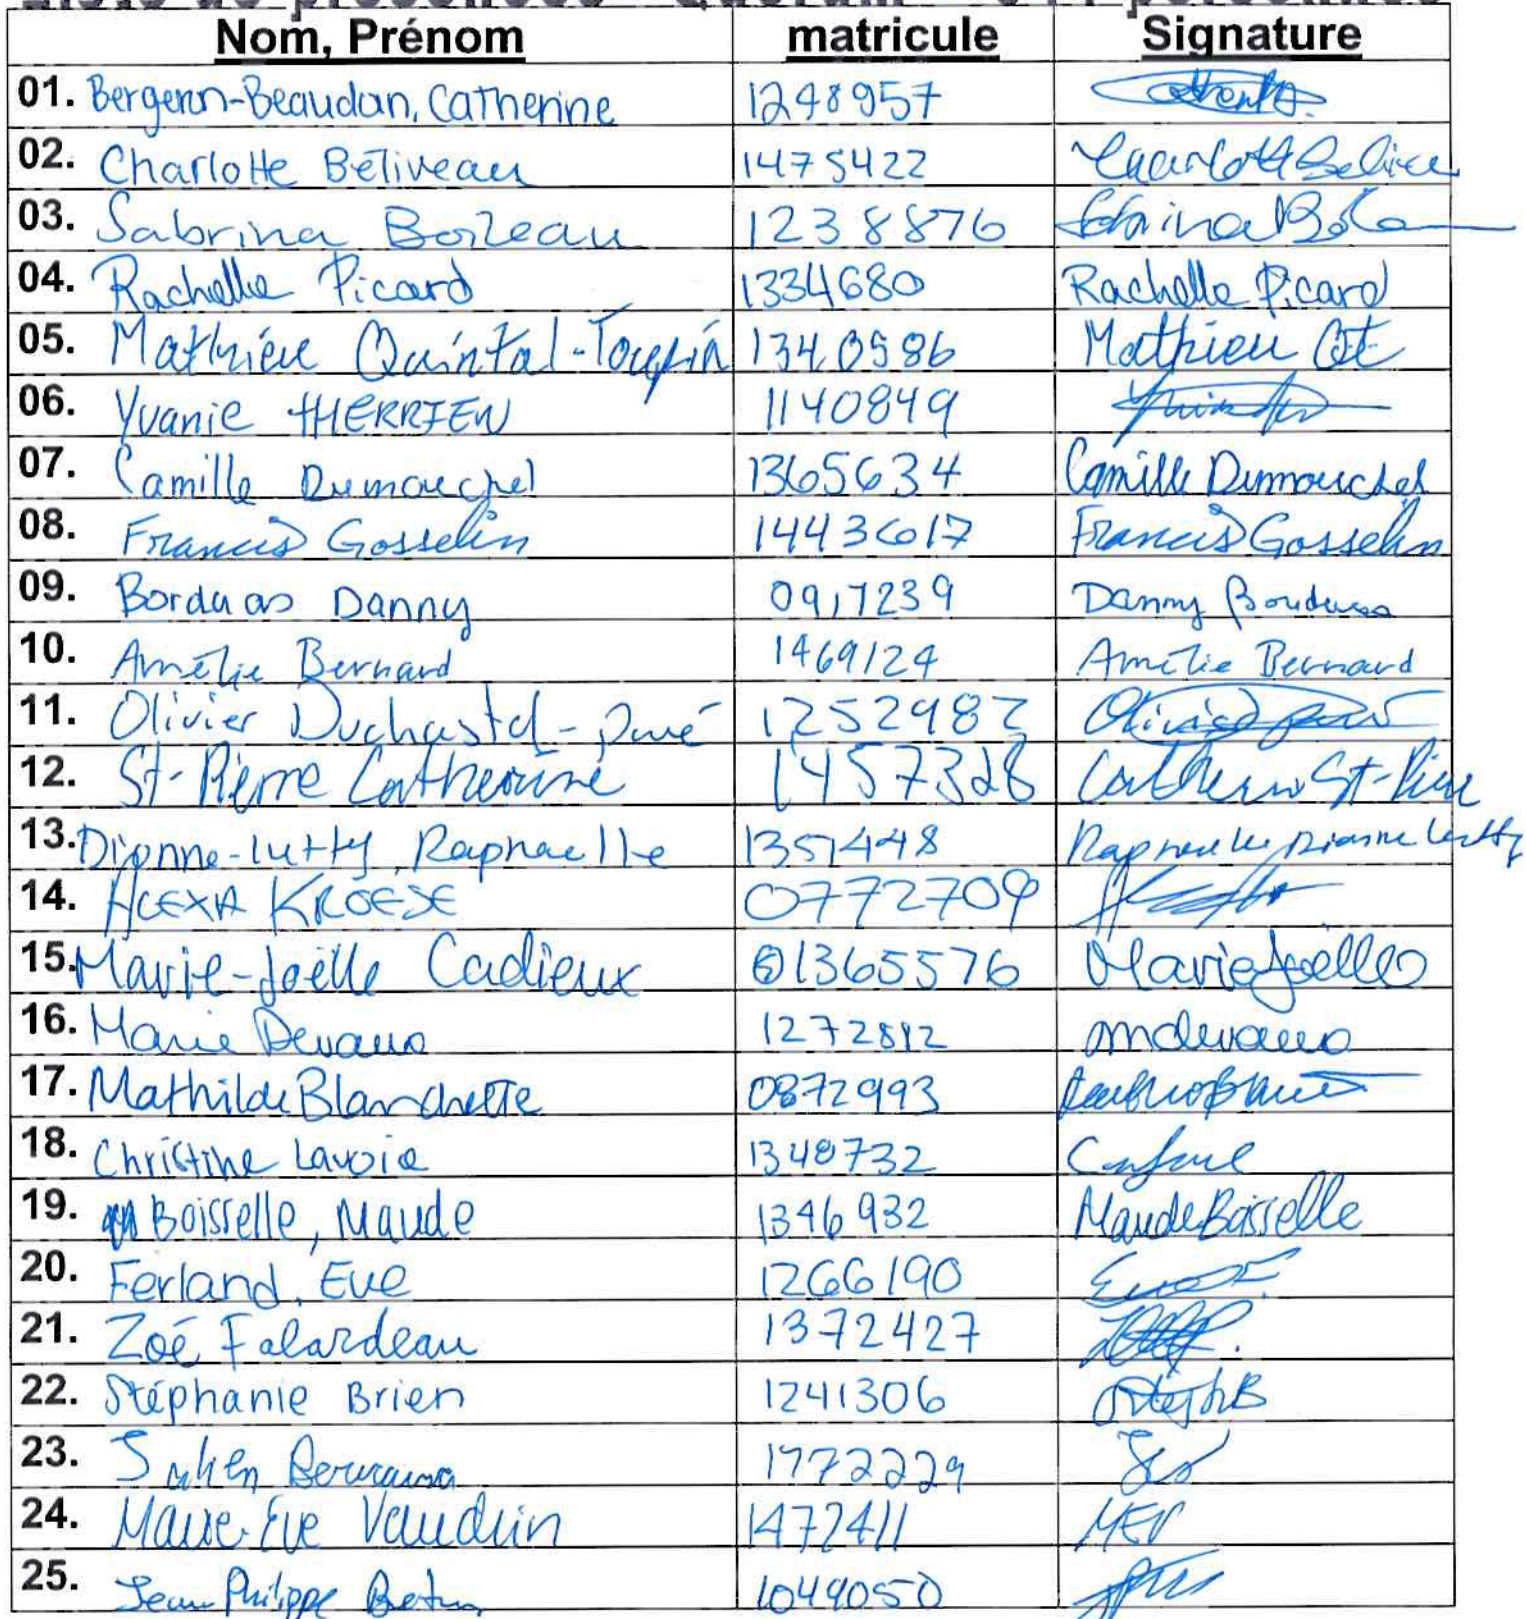 Liste de présences - Quorum
Nom, Prénom matricule Signature
01. Bergeron-Beaudoin, Catherine 1248957
02. Charlotte Béliveau 1475422
03. Sabrina Boileau 1238876
04. Rachelle Picard 1334680 Rachelle Picard
05. Mathieu Quintal-Toupin 1340586 Mathieu
06. Yvanie THERRIEN 1140849
07. Camille Dumouchel 1365634 Camille Dumouchel
08. Francis Gosselin 1443617 Francis Gosselin
09. Borduas Danny 0917239 Danny Borduas
10. Amélie Bernard 1469124 Amélie Bernard
11. Olivier Duchastel- 1252982
12. St-Pierre Catherine 1457328 Catherine St-Pierre
13. Dionne-lutty, Raphaelle 1351448 Raphaelle Dionne lutty
14. ALEXA KROESE 0772709
15. Marie-Joëlle Cadieux 01365576 Marie Joëlle
16. Marie Devaux 1272812
17. Mathilde Blanchette 0872993
18. Christine Lavoie 1348732
19. Boisselle, Maude 1346932 Maude Boisselle
20. Ferland, Eve 1266190
21. Zoé Falardeau 1372427
22. Stéphanie Brien 1241306
23. Julien 1772229
24. Marie-Eve Vaudrin 1472411 MEV
25. Jean Philippe 1049050